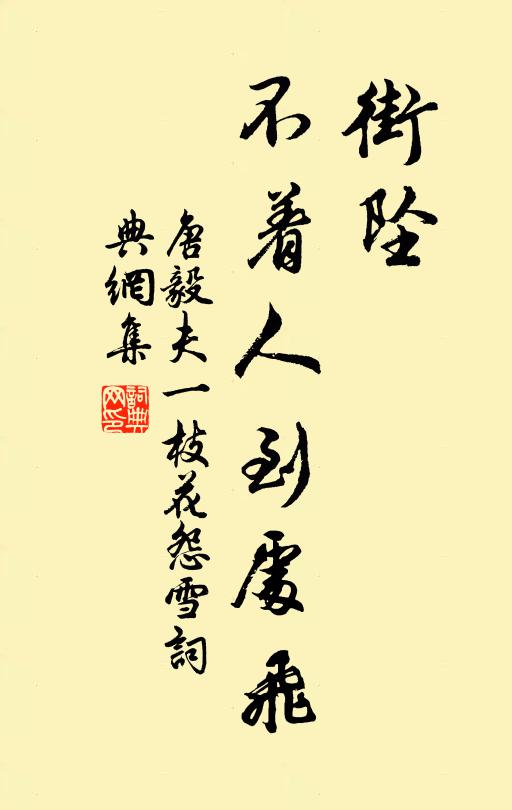 不着人到處飛
街坠
唐毅夫一枝花怨雪詞
典網集
詞典
网印